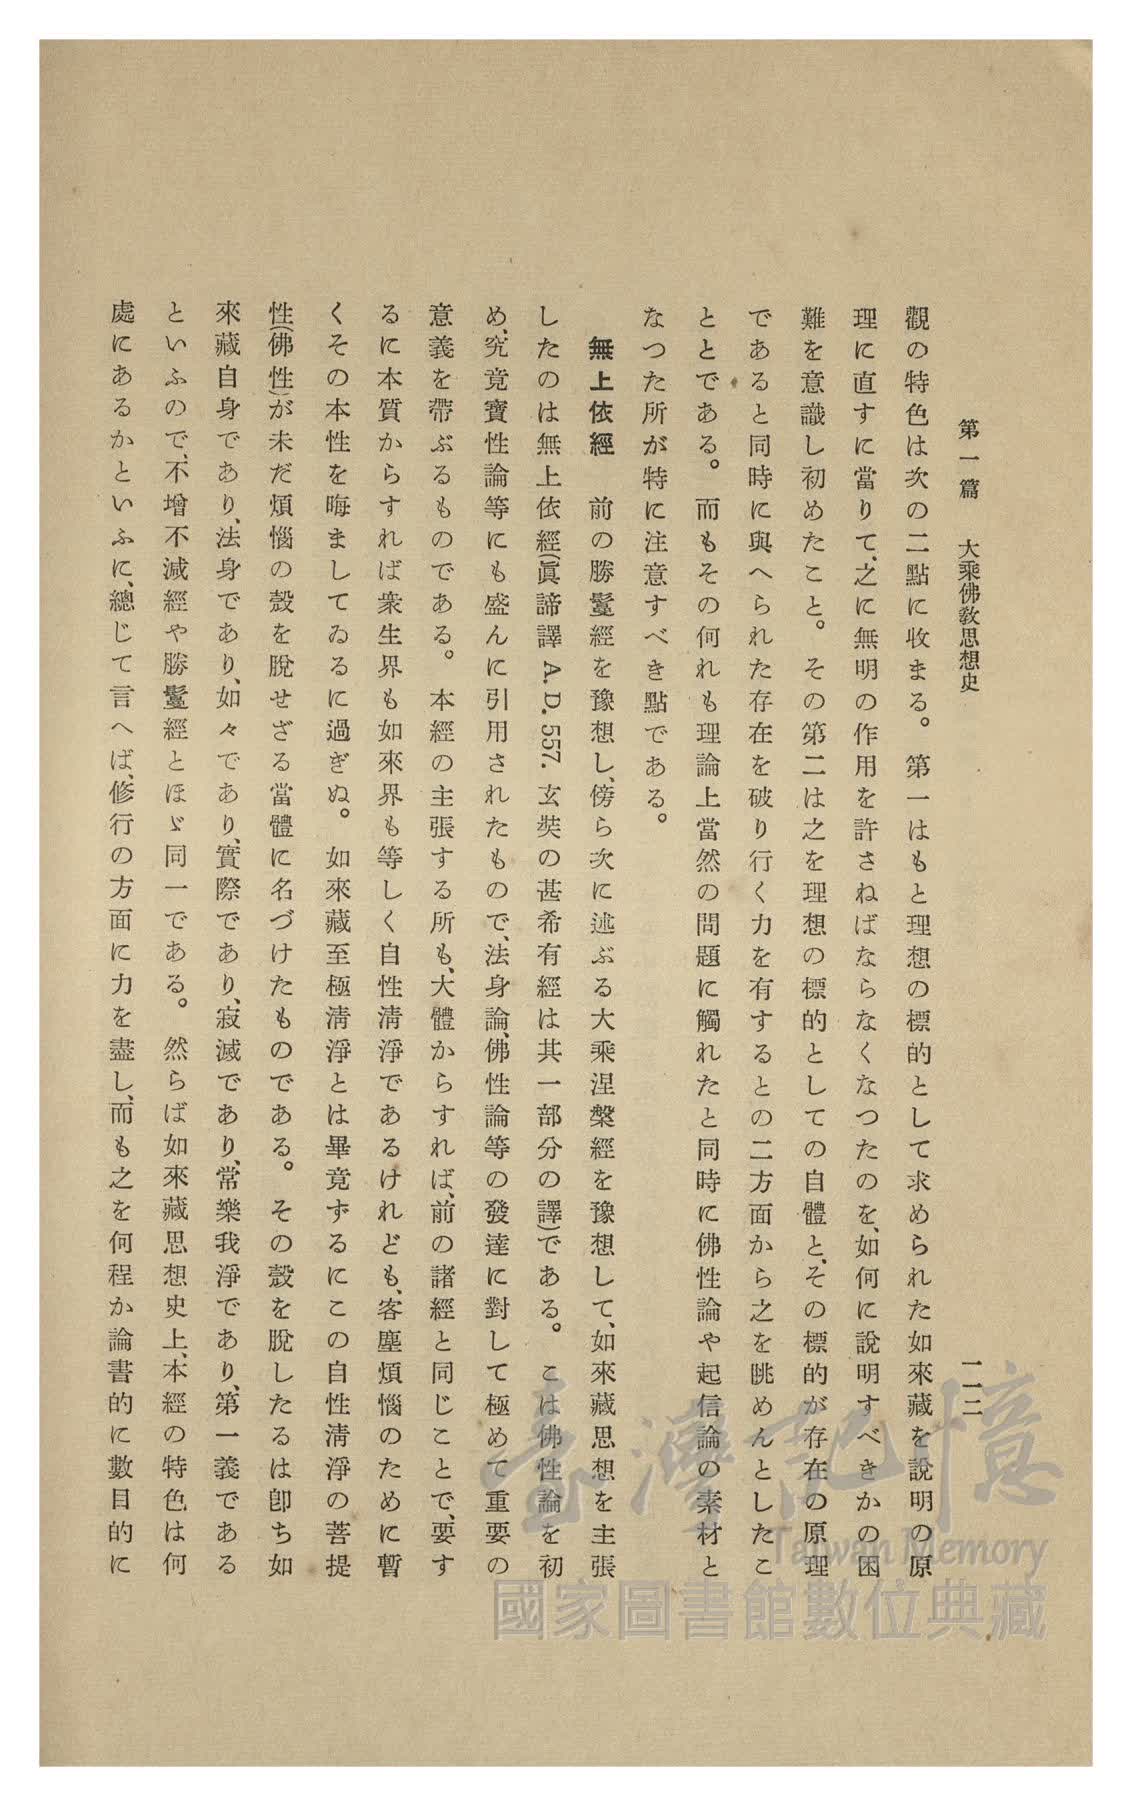 第一篇　大乘佛敎思想史
一一二
觀の特色は次の二點に收まる。第一はもと理想の標的として求められた如來藏を說明の原
理に直すに當りて、之に無明の作用を許さねばならなくなつたのを、如何に說明すべきかの困
難を意識し初めたこと。その第二は之を理想の標的としての自體と、その標的が存在の原理
であると同時に與へられた存在を破り行く力を有するとの二方面から之を眺めんとしたこ
ととである。而もその何れも理論上當然の問題に觸れたと同時に佛性論や起信論の素材と
なつた所が特に注意すべき點である。
無上依經　前の勝鬘經を豫想し、傍ら次に述ぶる大乘涅槃經を豫想して、如來藏思想を主張
したのは無上依經(眞諦譯 A.D. 557. 玄奘の甚希有經は其一部分の譯)である。こは佛性論を初
め、究竟寶性論等にも盛んに引用されたもので、法身論、佛性論等の發達に對して極めて重要の
意義を帶ぶるものである。本經の主張する所も、大體からすれば、前の諸經と同じことで、要す
るに本質からすれば衆生界も如來界も等しく自性淸淨であるけれども、客塵煩惱のために暫
くその本性を晦ましてゐるに過ぎぬ。如來藏至極淸淨とは畢竟ずるにこの自性淸淨の菩提
性(佛性)が未だ煩惱の殼を脫せざる當體に名づけたものである。その殼を脫したるは卽ち如
來藏自身であり、法身であり、如々であり、實際であり、寂滅であり、常樂我淨であり、第一義である
といふので、不增不減經や勝鬘經とほゞ同一である。然らば如來藏思想史上、本經の特色は何
處にあるかといふに、總じて言へば、修行の方面に力を盡し、而も之を何程か論書的に數目的に
臺灣記憶
Taiwan Memory
國家圖書館數位典藏